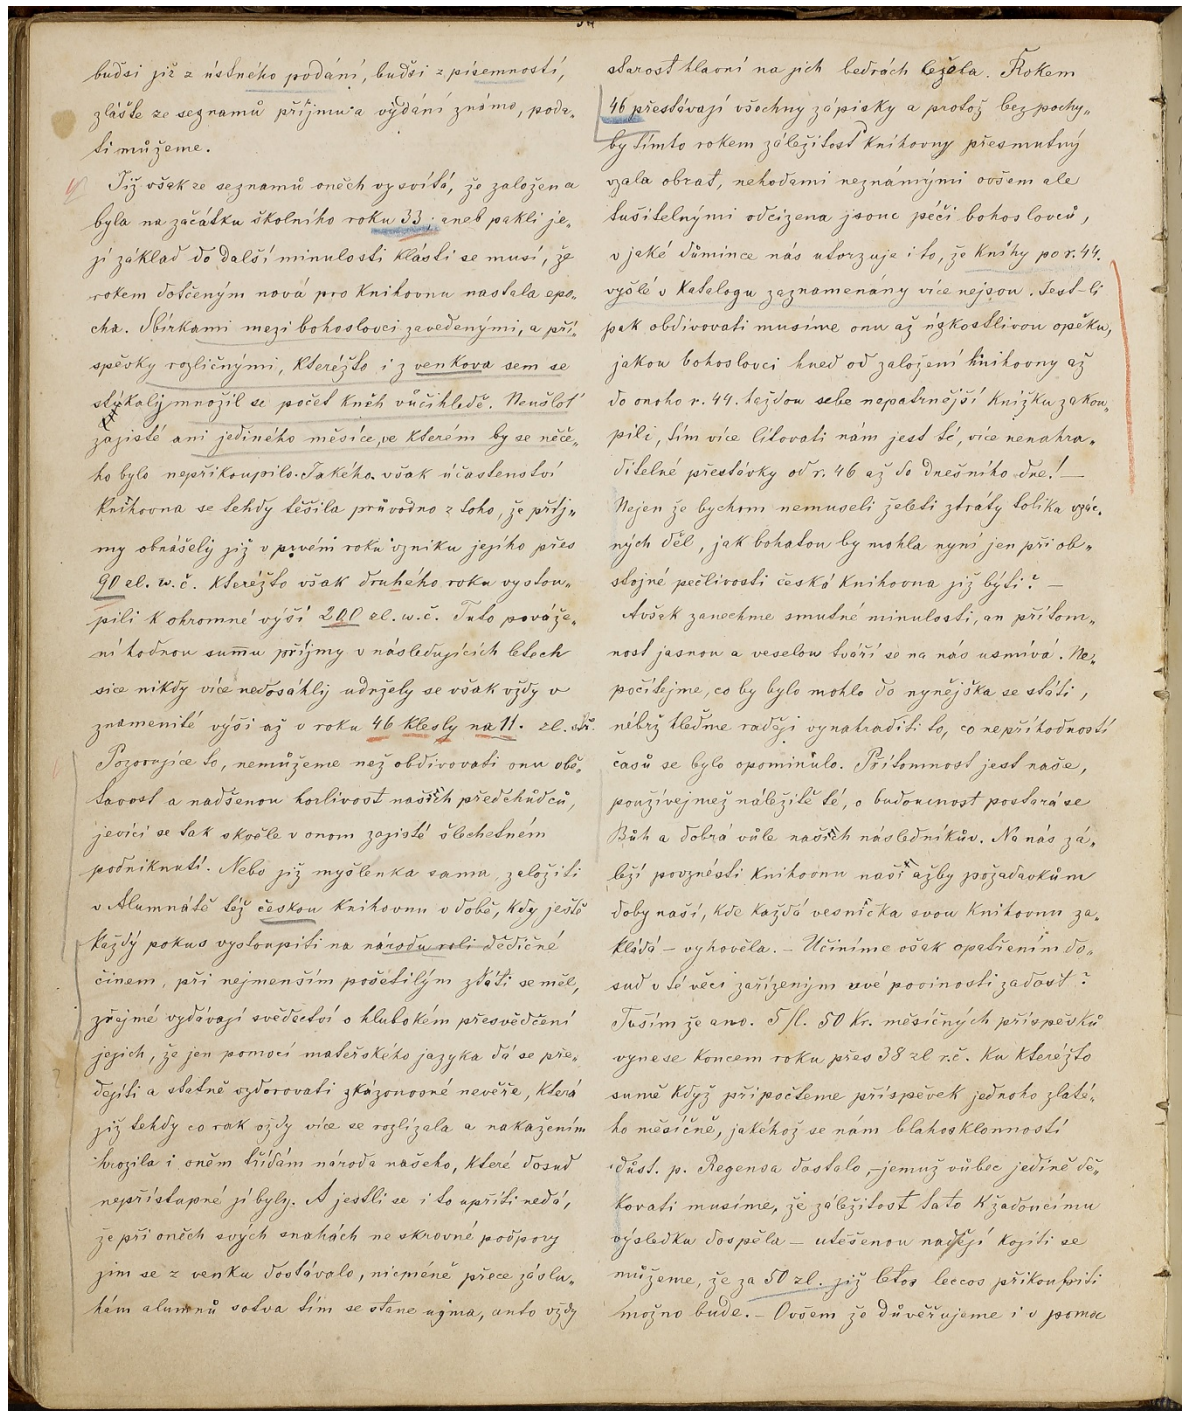 buďsi již z ústného podání, buďsi z písemností,
zláště ze seznamů příjmu a výdání známo, poda-
ti můžeme.
Již však ze seznamů oněch vysvítá, že založena
byla na začátku školního roku 33; aneb pakli je-
jí základ do další minulosti klásti se musí, že
rokem dotčeným nová pro knihovnu nastala epo-
cha. Sbírkami mezi bohoslovci zavedenými, a pří-
spěvky rozličnými, kteréžto i z venkova sem se
stýkaly množil se počet kněh vůčihledě. Neušloť
zajisté ani jediného měsíce, ve kterém by se něče-
ho bylo nepřikoupilo. Jakého však účastenství
knihovna se tehdy těšila průvodno z toho, že příj-
my obnášely již v prvém roku vzniku jejího přes
90 zl. w.č. kteréžto však druhého roku vystou-
pili k ohromné výši 200 zl. w.č. Tuto pováže-
ní hodnou sumu příjmy v následujících letech
sice nikdy více nedosáhly udržely se však vždy v
znamenité výši až v roku 46 klesly na 11. zl.
Pozorujíce to, nemůžeme než obdivovati onu obě-
tavost a nadšenou horlivost našich předchůdců,
jevící se tak skvěle v onom zajisté šlechetném
podniknutí. Nebo již myšlenka sama, založiti
v Alumnátě též českou knihovnu v době, kdy ještě
každý pokus vystoupiti na národu roli dědičné
činem, při nejmenším pošetilým zdáti se měl,
zřejmé vydávají svědectví o hlubokém přesvědčení
jejich, že jen pomocí mateřského jazyka dá se pře-
dejíti a statně vzdorovati zkázonosné nevěře, která
již tehdy co rak vždy více se rozlízala a nakažením
hrozila i oněm třídám národa našeho, které dosud
nepřístupné jí byly. A jestli se i to upříti nedá,
že při oněch svých snahách ne skrovné podpory
jim se z venku dostávalo, nicméně přece záslu-
hám alumnů sotva tím se stane ujma, anto vždy
starost hlavní na jich bedrách ležela. Rokem
46 přestávají všechny zápisky a protož bez pochy-
by tímto rokem záležitost knihovny přesmutný
vzala obrat, nehodami neznámými ovšem ale
tušitelnými odcizena jsouc péči bohoslovců,
v jaké důmínce nás utvrzuje i to, že knihy po r. 44.
vyšlé v katalogu zaznamenány více nejsou. Jest-li
pak obdivovati musíme onu až úzkostlivou opěku,
jakou bohoslovci hned od založení knihovny až
do onoho r. 44. každou sebe nepatrnější knížku zakou-
pili, tím více litovati nám jest té, více nenahra-
ditelné přestávky od r. 46 až do dnešního dne! —
Nejen že bychom nemuseli želeti ztráty tolika vzác-
ných děl, jak bohatou by mohla nyní jen při ob-
stojné pečlivosti česká knihovna již býti? —
Avšak zanechme smutné minulosti, an přítom-
nost jasnou a veselou tváří se na nás usmívá. Ne-
počítejme, co by bylo mohlo do nynějška se státi,
nébrž hleďme raději vynahraditi to, co nepříhodností
časů se bylo opominulo. Přítomnost jest naše,
používejmež náležitě té, o budoucnost postará se
Bůh a dobrá vůle našich následníkův. Na nás zá-
leží povznésti knihovnu naši ažby požadavkům
doby naší, kde každá vesnička svou knihovnu za-
kládá – vyhověla. – Učiníme však opatřením do-
sud v té věci zařízeným své povinosti zadost?
Tuším že ano. 5 fl. 50 kr. měsíčných příspěvků
vynese koncem roku přes 38 zl r.č. Ku kteréžto
sumě když připočteme příspěvek jednoho zlaté-
ho měsíčně, jakéhož se nám blahosklonností
důst. p. Regensa dostalo, – jemuž vůbec jedině dě-
kovati musíme, že záležitost tato k žadoucímu
výsledku dospěla – utěšenou nadějí kojiti se
můžeme, že za 50 zl. již letos leccos přikoupiti
možno bude. – Ovšem že důvěřujeme i v pomoc